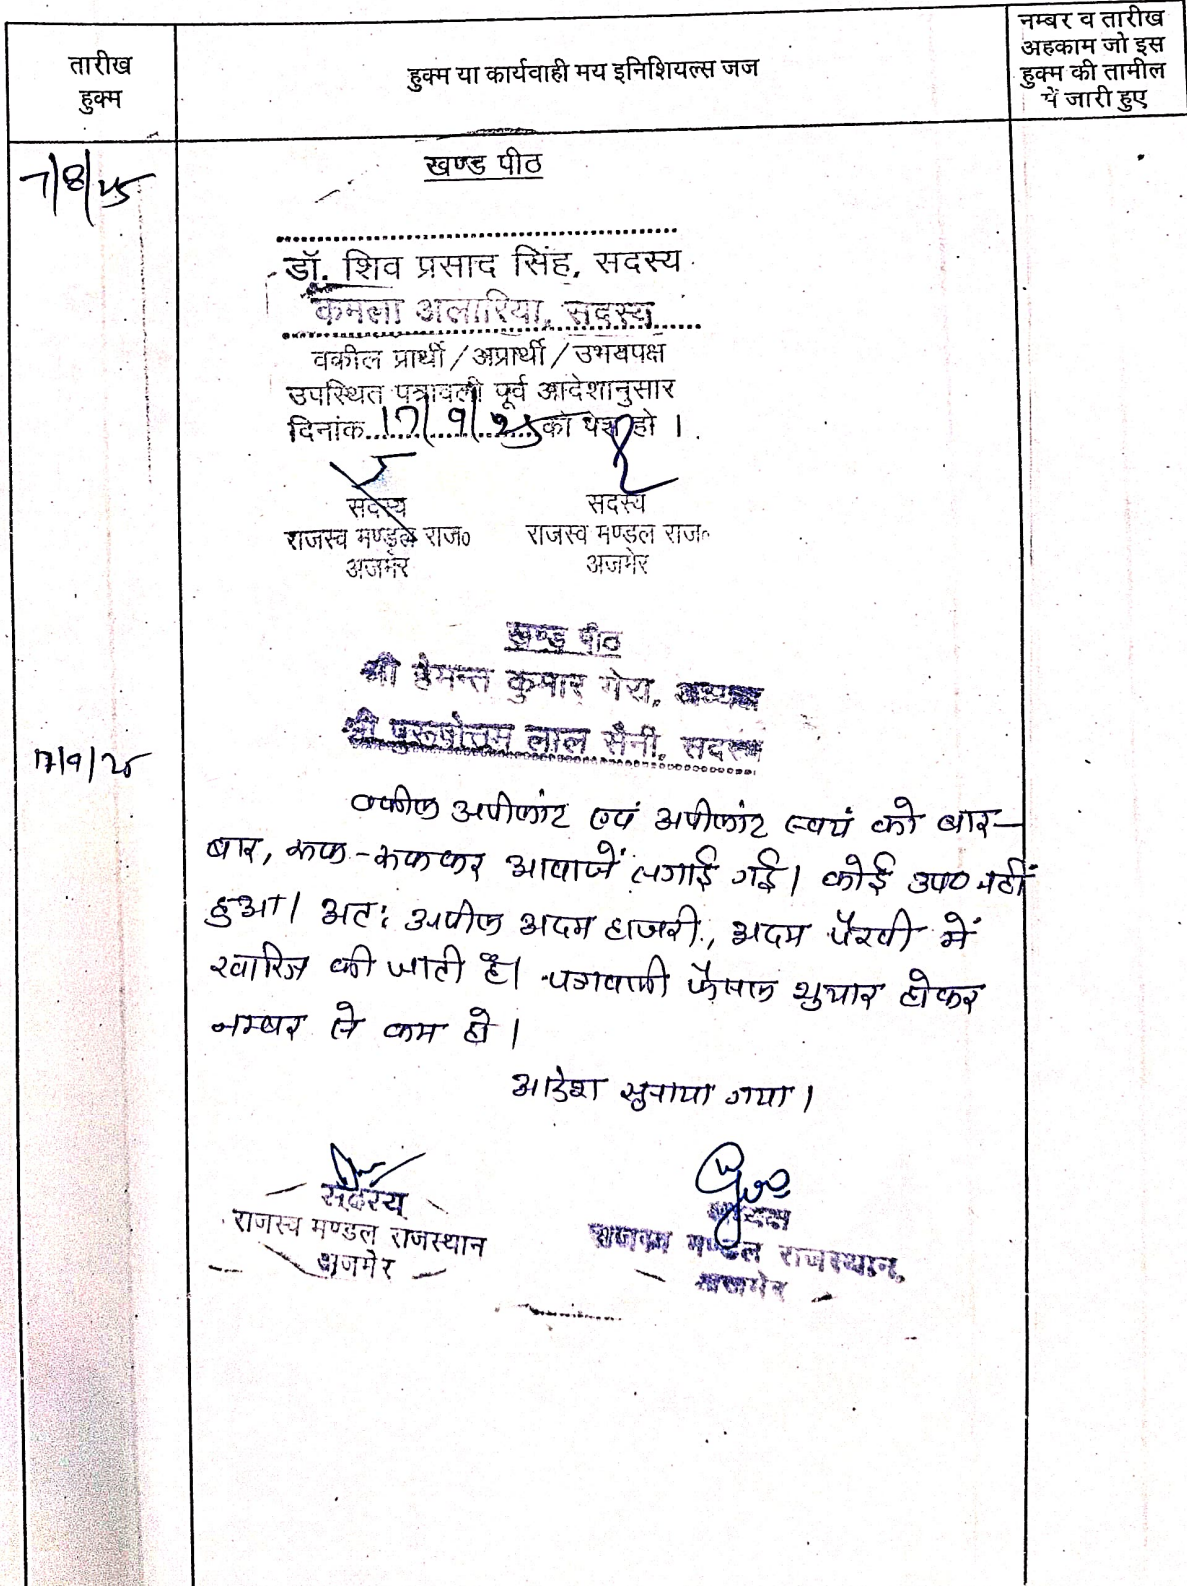 तारीख
हुक्म
हुक्म या कार्यवाही मय इनिशियल्स जज
नम्बर व तारीख
अहकाम जो इस
हुक्म की तामील
में जारी हुए
7/8/25
खण्ड पीठ
डॉ. शिव प्रसाद सिंह, सदस्य
कमला अलारिया, सदस्य
वकील प्रार्थी/अप्रार्थी/उभयपक्ष
उपस्थित पत्रावली पूर्व आदेशानुसार
दिनांक 17/9/25 को पेश हो ।
सदस्य
राजस्व मण्डल राज०
अजमेर
सदस्य
राजस्व मण्डल राज०
अजमेर
खण्ड पीठ
श्री हेमन्त कुमार गेरा, अध्यक्ष
श्री पुरूषोत्तम लाल सैनी, सदस्य
17/9/25
वकील अपीलांट एवं अपीलांट स्वयं को बार-
बार, रूक-रूककर आवाजें लगाई गई। कोई उप० नहीं
हुआ। अतः अपील अदम हाजरी, अदम पैरवी में
खारिज की जाती है। पत्रावली फैसल शुमार होकर
नम्बर से कम हो।
आदेश सुनाया गया।
सदस्य
राजस्व मण्डल राजस्थान
अजमेर
अध्यक्ष
राजस्व मण्डल राजस्थान,
अजमेर